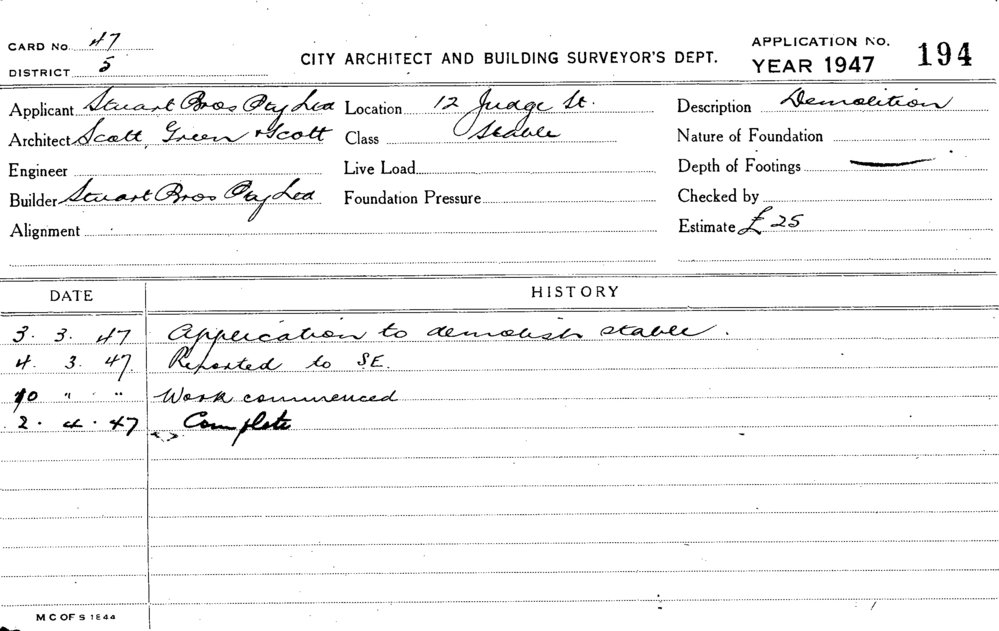 CARD No. 47
DISTRICT 5
CITY ARCHITECT AND BUILDING SURVEYOR'S DEPT.
APPLICATION No. 194
YEAR 1947
Applicant Stuart Bros Pty Ltd Location 12 Judge St. Description Demolition
Architect Scott, Green & Scott Class Stable Nature of Foundation
Engineer Live Load Depth of Footings —
Builder Stuart Bros Pty Ltd Foundation Pressure Checked by
Alignment Estimate £ 25
DATE HISTORY
3. 3. 47 Application to demolish stable.
4. 3. 47. Reported to S.E.
10 " " Work commenced
2. 4. 47 Complete
M C OF S 1844